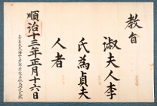 教旨
淑夫人李
氏為貞夫
人者
順治十三年正月十六日